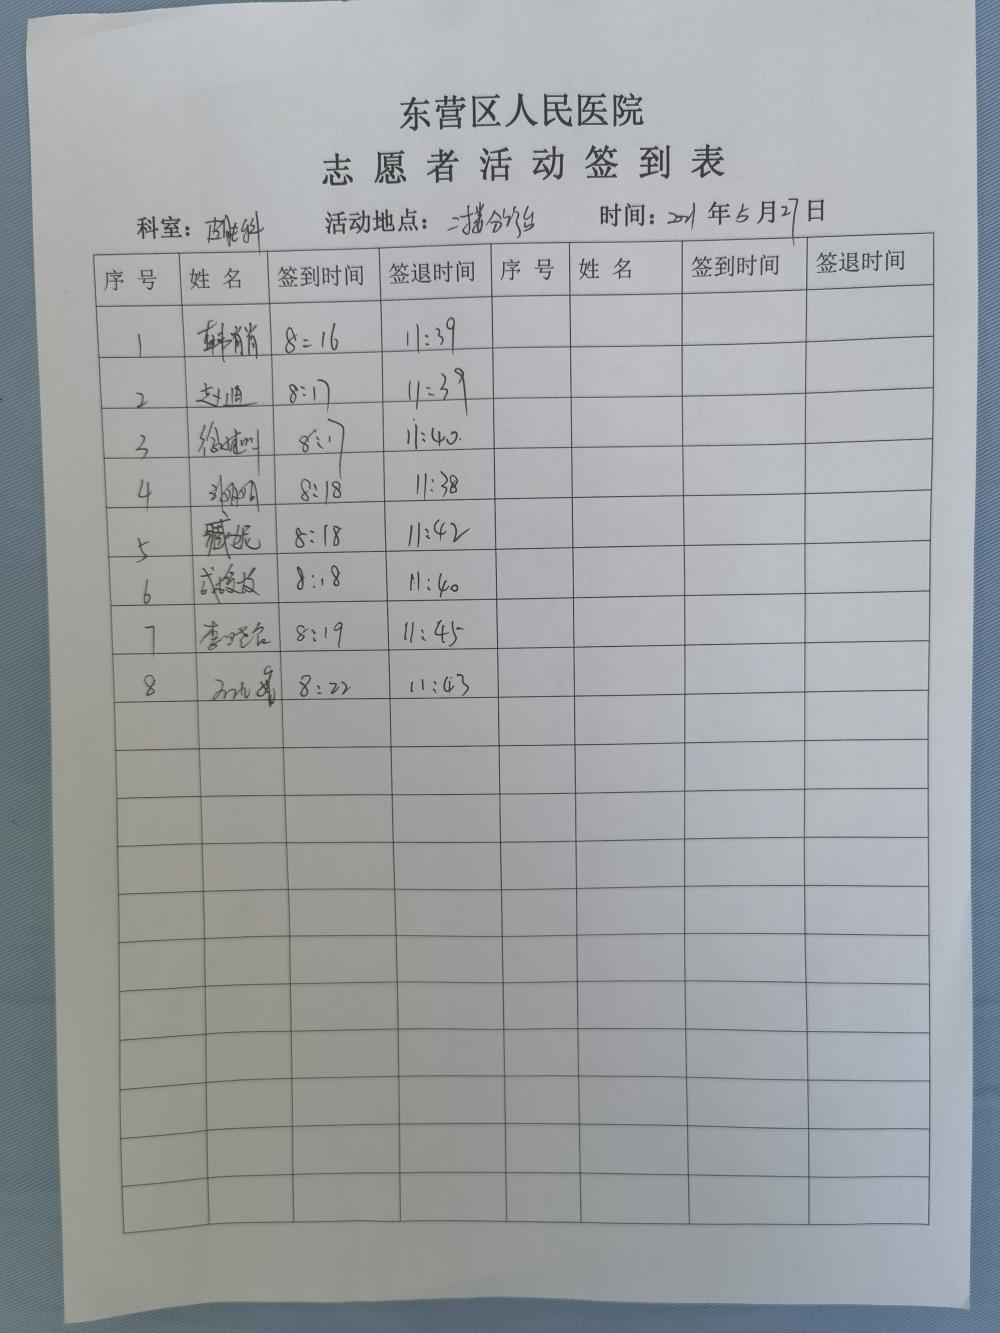 东营区人民医院
志愿者活动签到表
科室： 活动地点：二楼分诊台 时间：2021年5月27日
序号 姓名 签到时间 签退时间 序号 姓名 签到时间 签退时间
1 韩肖肖 8:16 11:39
2 8:17 11:39
3 8:17 11:40
4 8:18 11:38
5 臧妮 8:18 11:42
6 8:18 11:40
7 8:19 11:45
8 8:22 11:43